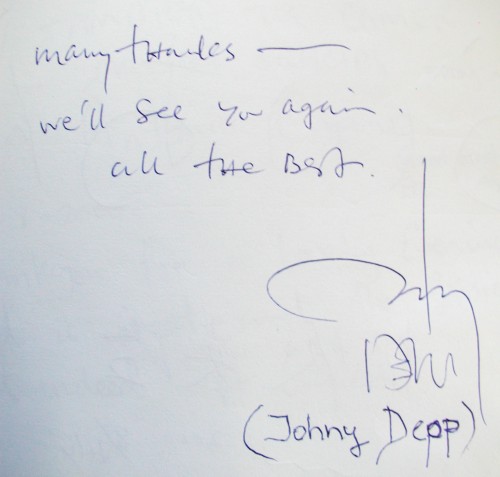 many thanks —
we'll see you again.
all the Best.
(Johny Depp)